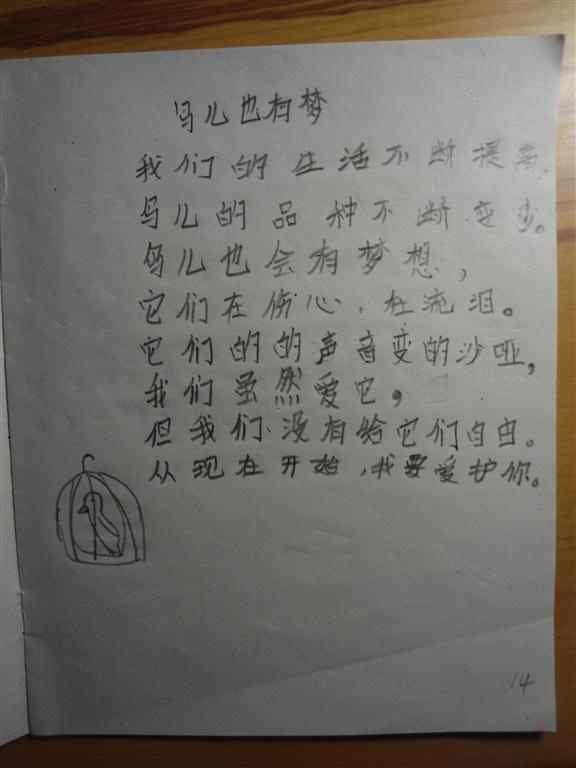 鸟儿也有梦
我们的生活不断提高,
鸟儿的品种不断变少。
鸟儿也会有梦想,
它们在伤心,在流泪。
它们的的声音变的沙哑,
我们虽然爱它,
但我们没有给它们自由。
从现在开始,我要爱护你。
14